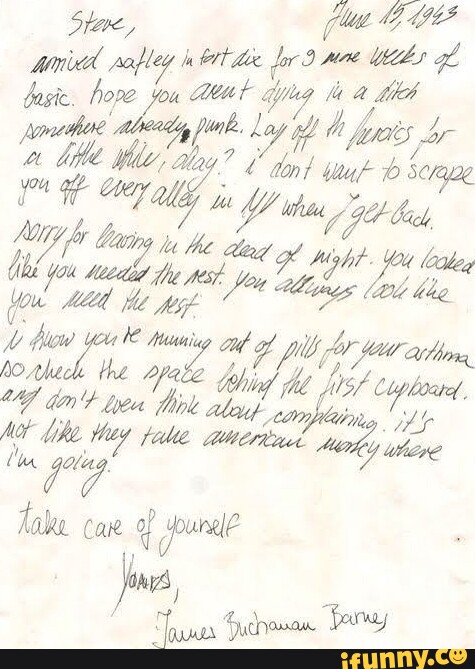 June 15, 1943
Steve,
arrived safley in fort dix for 9 more weeks of
basic. hope you arent dying in a ditch
somewhere already, punk. Lay off th heroics for
a little while, okay? i dont want to scrape
you off every alley in NY when I get back.
sorry for leaving in the dead of night. you looked
like you needed the rest. you allways look like
you need the rest.
i know you're running out of pills for your asthma
so check the space behind the first cupboard.
and don't even think about complaining. it's
not like they take american money where
i'm going.
take care of yourself
Yours,
James Buchanan Barnes
ifunny.co